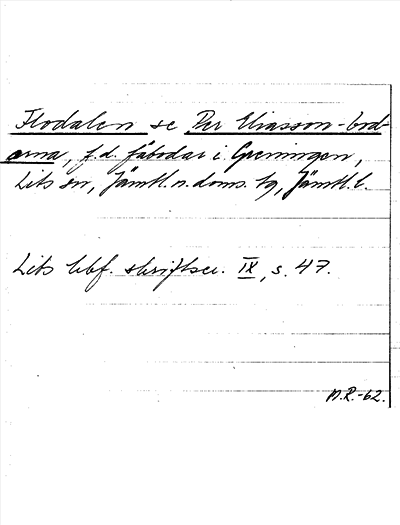 Flodalen se Per Eliasson-bod-
arna, f.d. fäbodar i Greningen,
Lits sn, Jämtl. n. doms. tg, Jämtl. l.
Lits hbf. skriftser. IX, s. 47.
D.R.-62.